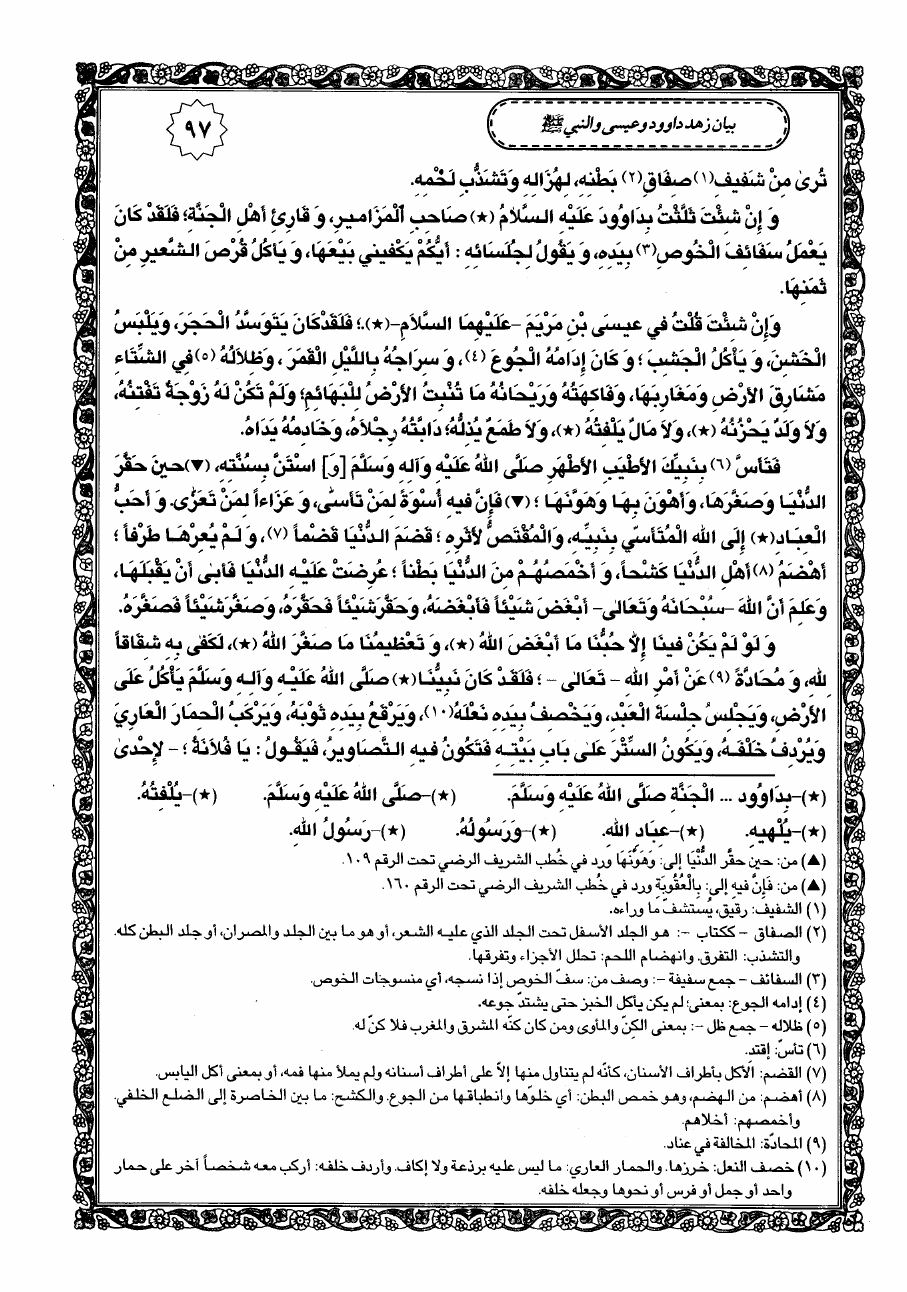 بيان زهد داوود وعيسى والنبي ﷺ
٩٧
تُرىٰ مِنْ شَفيفِ(١) صفَاقِ(٢) بَطْنه، لهُزَاله وَتَشَذُّب لَحْمه.
وَ إنْ شئْتَ ثَلَّثْتُ بدَاوُودَ عَلَيْه السَّلاَمُ (★) صَاحب الْمَزَامير، وَ قَارِئ أهْل الجَنَّة؛ فَلَقَدْ كَانَ
يَعْمَلُ سَفَائفَ الْخُوص(٣) بيَده، وَ يَقُولُ لجُلَسَائه : أيُّكُمْ يَكْفيني بَيْعَهَا، وَ يَأكُلُ قُرْصَ الشَّعير منْ
ثَمَنهَا.
وَإنْ شئْتَ قُلْتُ في عيسَى بْن مَرْيَمَ –عَلَيْهمَا السَّلاَمَ–(★)؛ فَلَقَدْ كَانَ يَتَوَسَّدُ الْحَجَرَ، وَيَلْبَسُ
الْخَشنَ، وَ يَأكُلُ الْجَشبَ ؛ وَ كَانَ إدَامُهُ الْجُوعَ (٤)، وَ سرَاجُهُ باللَّيْل الْقَمَرَ، وَظلاَلُهُ (٥)في الشّتَاء
مَشَارقَ الأرْض وَمَغَاربَهَا، وَفَاكهَتُهُ وَرَيْحَانُهُ مَا تُنْبتُ الأرْضُ للْبَهَائم؛ وَلَمْ تَكُنْ لَهُ زَوْجَةٌ تَفْتنُهُ،
وَلاَ وَلَدٌ يَحْزُنُهُ (★)، وَلاَ مَالٌ يَلْفتُهُ (★)، وَلاَ طَمَعٌ يُذلُّهُ؛ دَابَّتُهُ رجْلاَهُ، وَخَادمُهُ يَدَاهُ.
فَتَأسَّ (٦) بنَبيّكَ الأطْيَب الأطْهَر صَلَّى اللهُ عَلَيْه وَآله وَسَلَّمَ [وَ] اسْتَنَّ بسُنَّته، (▼)حينَ حَقَّرَ
الدُّنْيَا وَصَغَّرَهَا، وَأهْوَنَ بهَا وَهَوَّنَهَا ؛ (▼) فَإنَّ فيه أسْوَةً لمَنْ تَأسّىٰ، وَ عَزَاءاً لمَنْ تَعَزّىٰ. وَ أحَبُّ
الْعبَاد(★) إلَى الله الْمُتَأسّي بنَبيّه، وَالْمُقْتَصُّ لأثَره ؛ قَضَمَ الدُّنْيَا قَضْماً (٧)، وَ لَمْ يُعرْهَا طَرْفاً ؛
أهْضَمُ (٨) أهْل الدُّنْيَا كَشْحاً، وَ أخْمَصُهُمْ منَ الدُّنْيَا بَطْناً ؛ عُرضَتْ عَلَيْه الدُّنْيَا فَأبىٰ أنْ يَقْبَلَهَا،
وَعَلمَ أنَّ اللهَ –سُبْحَانَهُ وَتَعَالى– أبْغَضَ شَيْئاً فَأبْغَضَهُ، وَحَقَّرَ شَيْئاً فَحَقَّرَهُ، وَصَغَّرَ شَيْئاً فَصَغَّرَهُ.
وَ لَوْ لَمْ يَكُنْ فينَا إلاّ حُبُّنَا مَا أبْغَضَ اللهُ (★)، وَ تَعْظيمُنَا مَا صَغَّرَ اللهُ (★)، لَكَفى به شقَاقاً
لله، وَ مُحَادَّةً (٩) عَنْ أمْر الله – تَعَالى – ؛ فَلَقَدْ كَانَ نَبيُّنَا(★) صَلَّى اللهُ عَلَيْه وَآله وَسَلَّمَ يَأكُلُ عَلَى
الأرْض، وَيَجْلسُ جلْسَةَ الْعَبْد، وَيَخْصفُ بيَده نَعْلَهُ(١٠)، وَيَرْقَعُ بيَده ثَوْبَهُ، وَيَرْكَبُ الْحمَارَ الْعَاريَ
وَيُرْدفُ خَلْفَهُ، وَيَكُونُ السّتْرُ عَلىٰ بَاب بَيْته فَتَكُونُ فيه التَّصَاويرُ، فَيَقُولُ : يَا فُلاَنَةُ ؛ – لإحْدىٰ
(★)–بدَاوُود ... الْجَنَّة صَلَّى اللهُ عَلَيْه وَسَلَّمَ. (★)–صَلَّى اللهُ عَلَيْه وَسَلَّمَ. (★)–يُلْفتُهُ.
(★)–يُلْهيه. (★)–عبَاد الله. (★)–وَرَسُولُهُ. (★)–رَسُولُ الله.
(▲) من: حين حقَّر الدُّنْيَا إلى: وَهَوَّنَهَا ورد في خُطب الشريف الرضي تحت الرقم ١٠٩.
(▲) من: فَإنَّ فيه إلى: بِالْعُقُوبَة ورد في خُطب الشريف الرضي تحت الرقم ١٦٠.
(١) الشفيف: رقيق، يُستشفّ ما وراءه.
(٢) الصفاق – ككتاب –: هو الجلد الأسفل تحت الجلد الذي عليه الشعر، أو هو ما بين الجلد والمصران، أو جلد البطن كله.
والتشذب: التفرق. وانهضام اللحم: تحلل الأجزاء وتفرقها.
(٣) السفائف – جمع سفيفة –: وصف من: سفّ الخوص إذا نسجه، أي منسوجات الخوص.
(٤) إدامه الجوع: بمعنى؛ لم يكن يأكل الخبز حتى يشتدّ جوعه.
(٥) ظلاله – جمع ظل –: بمعنى الكنّ والمأوى ومن كان كنّه المشرق والمغرب فلا كنّ له.
(٦) تأسّ: إقتد.
(٧) القضم: الأكل بأطراف الأسنان، كأنّه لم يتناول منها إلاّ على أطراف أسنانه ولم يملأ منها فمه، أو بمعنى أكل اليابس.
(٨) أهضم: من الهضم، وهو خمص البطن: أي خلوّها وانطباقها من الجوع. والكشح: ما بين الخاصرة إلى الضلع الخلفي.
وأخمصهم: أخلاهم.
(٩) المحادّة: المخالفة في عناد.
(١٠) خصف النعل: خرزها. والحمار العاري: ما ليس عليه برذعة ولا إكاف. وأردف خلفه: أركب معه شخصاً آخر على حمار
واحد أو جمل أو فرس أو نحوها وجعله خلفه.